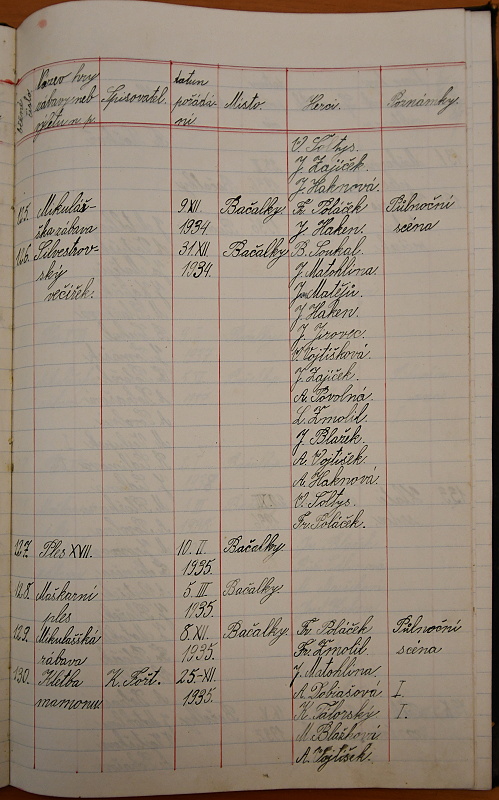 Název hry zábavy neb výletu n. p. Spisovatel. datum pořádání Místo. Herci. Poznámky.
V. Šoltys.
J. Zajíček.
J. Haknová.
125. Mikuláš- 9. XII. Bačalky. Fr. Poláček Půlnoční
ská zábava 1934 J. Haken. scéna
126. Silvestrov- 31. XII. Bačalky B. Soukal.
ský 1934. J. Matohlina
večírek. Jar. Matějů.
J. Haken.
J. Jirovec.
V. Vojtíšková.
J. Zajíček.
A. Povolná.
L. Zmolil.
J. Blažek.
A. Vojtíšek.
A. Haknová.
V. Šoltys.
Fr. Poláček.
127. Ples XVII. 10. II. Bačalky.
1935.
128. Maškarní 5. III. Bačalky.
ples 1935.
129. Mikulašská 8. XII. Bačalky. Fr. Poláček Půlnoční
zábava 1935. Fr. Zmolil. scéna
130. Kletba K. Fořt. 25.-XII. J. Matohlina.
mamonu 1935. A. Dobiašová I.
K. Tálorský I.
M. Blažková
A. Vojtíšek.